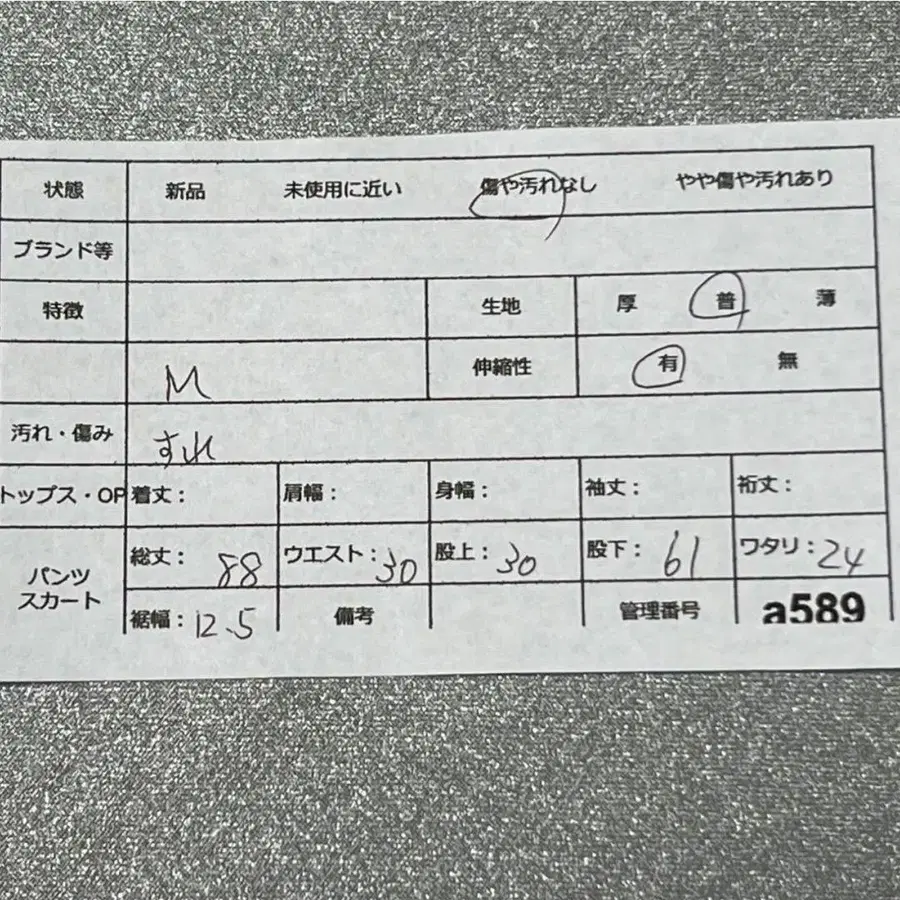 状態 新品 未使用に近い 傷や汚れなし やや傷や汚れあり
ブランド等
特徴 生地 厚 普 薄
M 伸縮性 有 無
汚れ・傷み すれ
トップス・OP 着丈： 肩幅： 身幅： 袖丈： 裄丈：
パンツ スカート 総丈： 88 ウエスト： 30 股上： 30 股下： 61 ワタリ： 24
裾幅： 12.5 備考 管理番号 a589